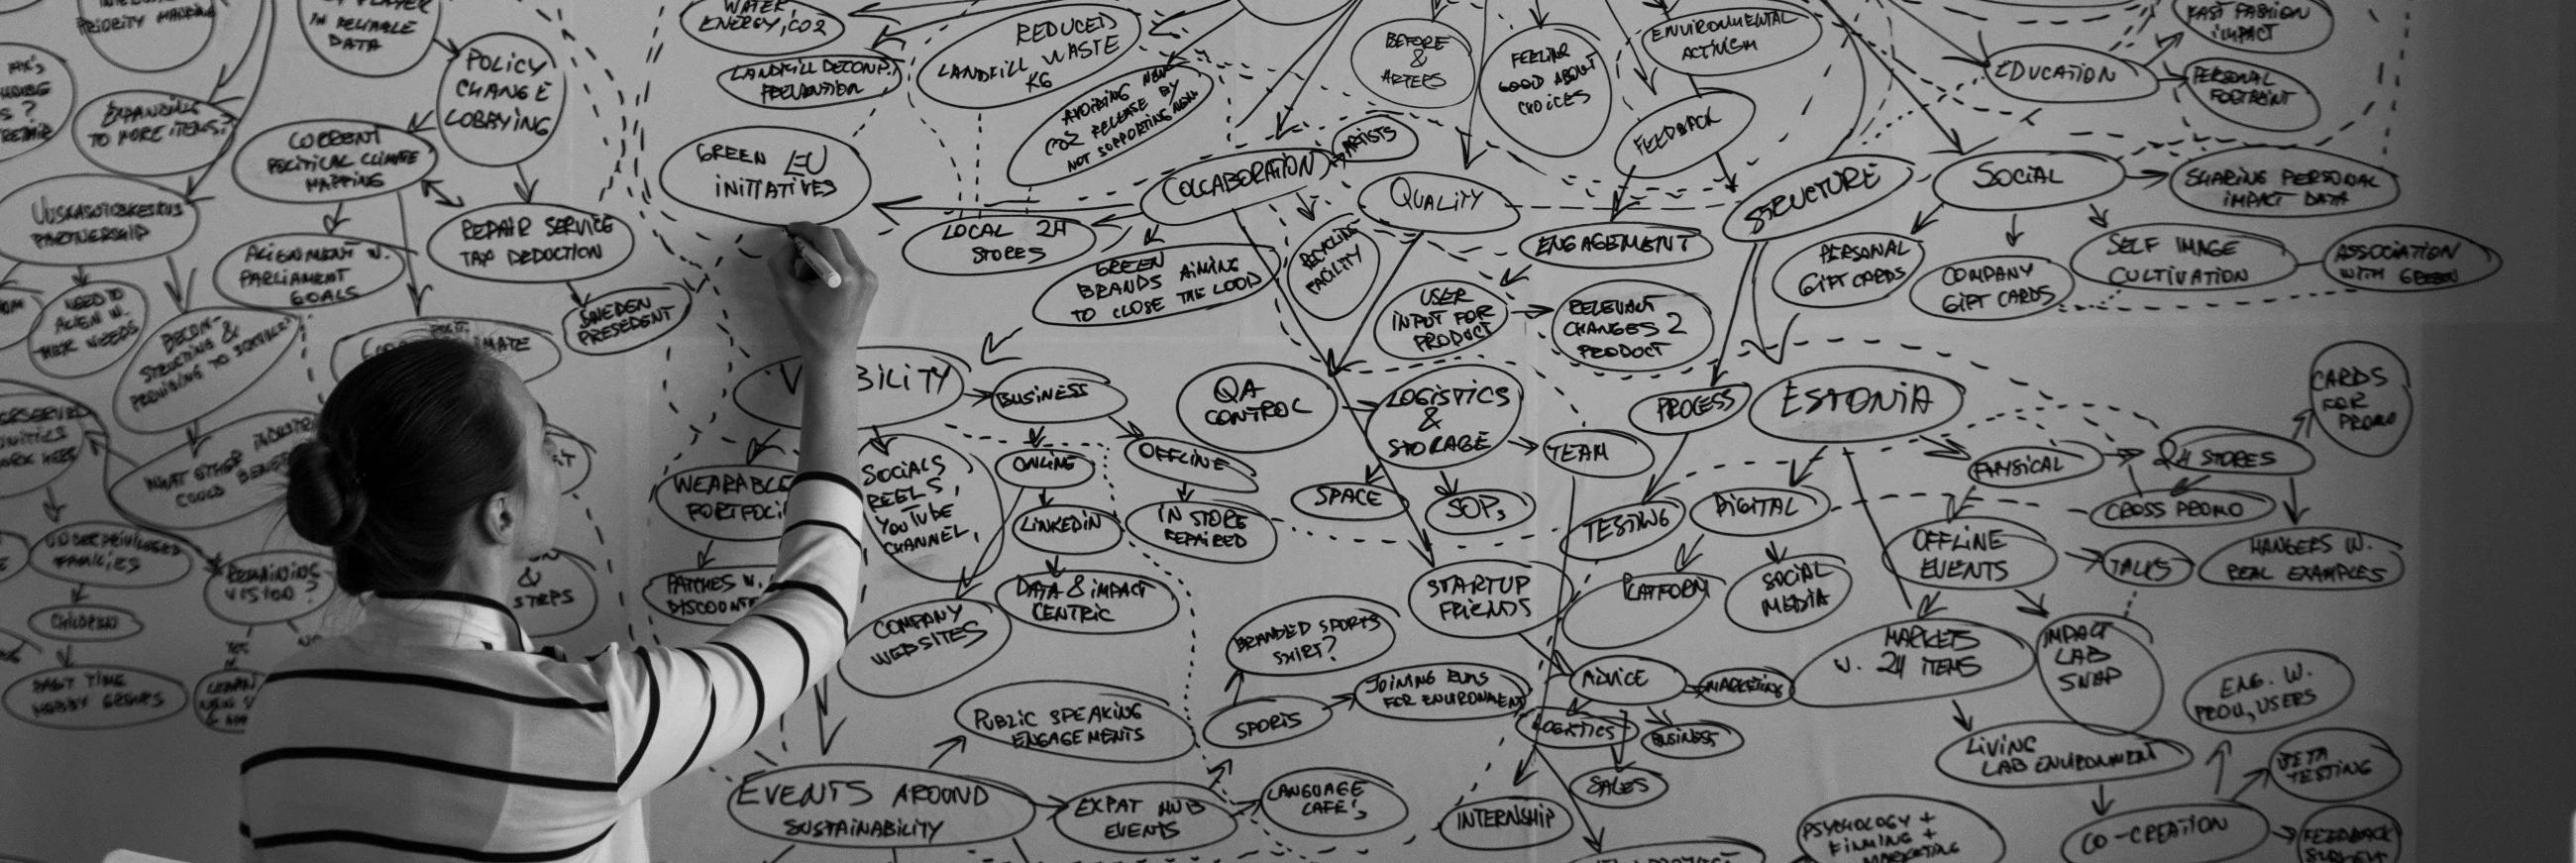 PRIORITY MAPPING
IN RELIABLE
DATA
POLICY
CHANGE
LOBBYING
EXPANDING
TO MORE ITEMS?
CURRENT
POLITICAL CLIMATE
MAPPING
UUSKASUTUSKESKUS
PARTNERSHIP
ALIGNMENT W.
PARLIAMENT
GOALS
REPAIR SERVICE
TAX DEDUCTION
SWEDEN
PRESEDENT
NEED TO
ALIGN W.
THEIR NEEDS
WHAT OTHER
COULD
UNDERPRIVILEGED
FAMILIES
CHILDREN
PAST TIME
HOBBY GROUPS
REMAINING
VISION?
YES
&
STEPS
WATER,
ENERGY, CO2
LANDFILL DECOMP.
PREVENTION
REDUCED
LANDFILL WASTE
KG
AVOIDING NEW
CO2 RELEASE BY
NOT SUPPORTING NEW
GREEN EU
INITIATIVES
BEFORE
&
AFTERS
FEELING
GOOD ABOUT
CHOICES
ENVIRONMENTAL
ACTIVISM
FEEDBACK
EDUCATION
FAST FASHION
IMPACT
PERSONAL
FOOTPRINT
COLLABORATION
ARTISTS
QUALITY
STRUCTURE
SOCIAL
SHARING PERSONAL
IMPACT DATA
LOCAL 2H
STORES
GREEN
BRANDS AIMING
TO CLOSE THE LOOP
RECYCLING
FACILITY
ENGAGEMENT
USER
INPUT FOR
PRODUCT
RELEVANT
CHANGES 2
PRODUCT
PERSONAL
GIFT CARDS
COMPANY
GIFT CARDS
SELF IMAGE
CULTIVATION
ASSOCIATION
WITH GREEN
V BILITY
BUSINESS
QA
CONTROL
LOGISTICS
&
STORAGE
PROCESS
ESTONIA
CARDS
FOR
PROMO
WEARABLE
PORTFOLI
SOCIALS
REELS,
YOUTUBE
CHANNEL,
ONLINE
OFFLINE
LINKEDIN
IN STORE
REPAIRED
SPACE
SOPs
TEAM
TESTING
DIGITAL
PHYSICAL
2H STORES
CROSS PROMO
PATCHES W.
DISCOUNT
DATA & IMPACT
CENTRIC
COMPANY
WEBSITES
STARTUP
FRIENDS
PLATFORM
SOCIAL
MEDIA
OFFLINE
EVENTS
TALKS
HANGERS W.
REAL EXAMPLES
BRANDED SPORTS
SHIRT?
SPORTS
JOINING RUNS
FOR ENVIRONMENT
ADVICE
MARKETING
LOGISTICS
BUSINESS
SALES
MARKETS
W. 2H ITEMS
IMPACT
LAB
SNAP
PUBLIC SPEAKING
ENGAGEMENTS
EVENTS AROUND
SUSTAINABILITY
EXPAT HUB
EVENTS
LANGUAGE
CAFE'S
INTERNSHIP
LIVING
LAB ENVIRONMENT
ENG. W.
USERS
BETA
TESTING
CO-CREATION
FEEDBACK
PSYCHOLOGY +
MARKETING